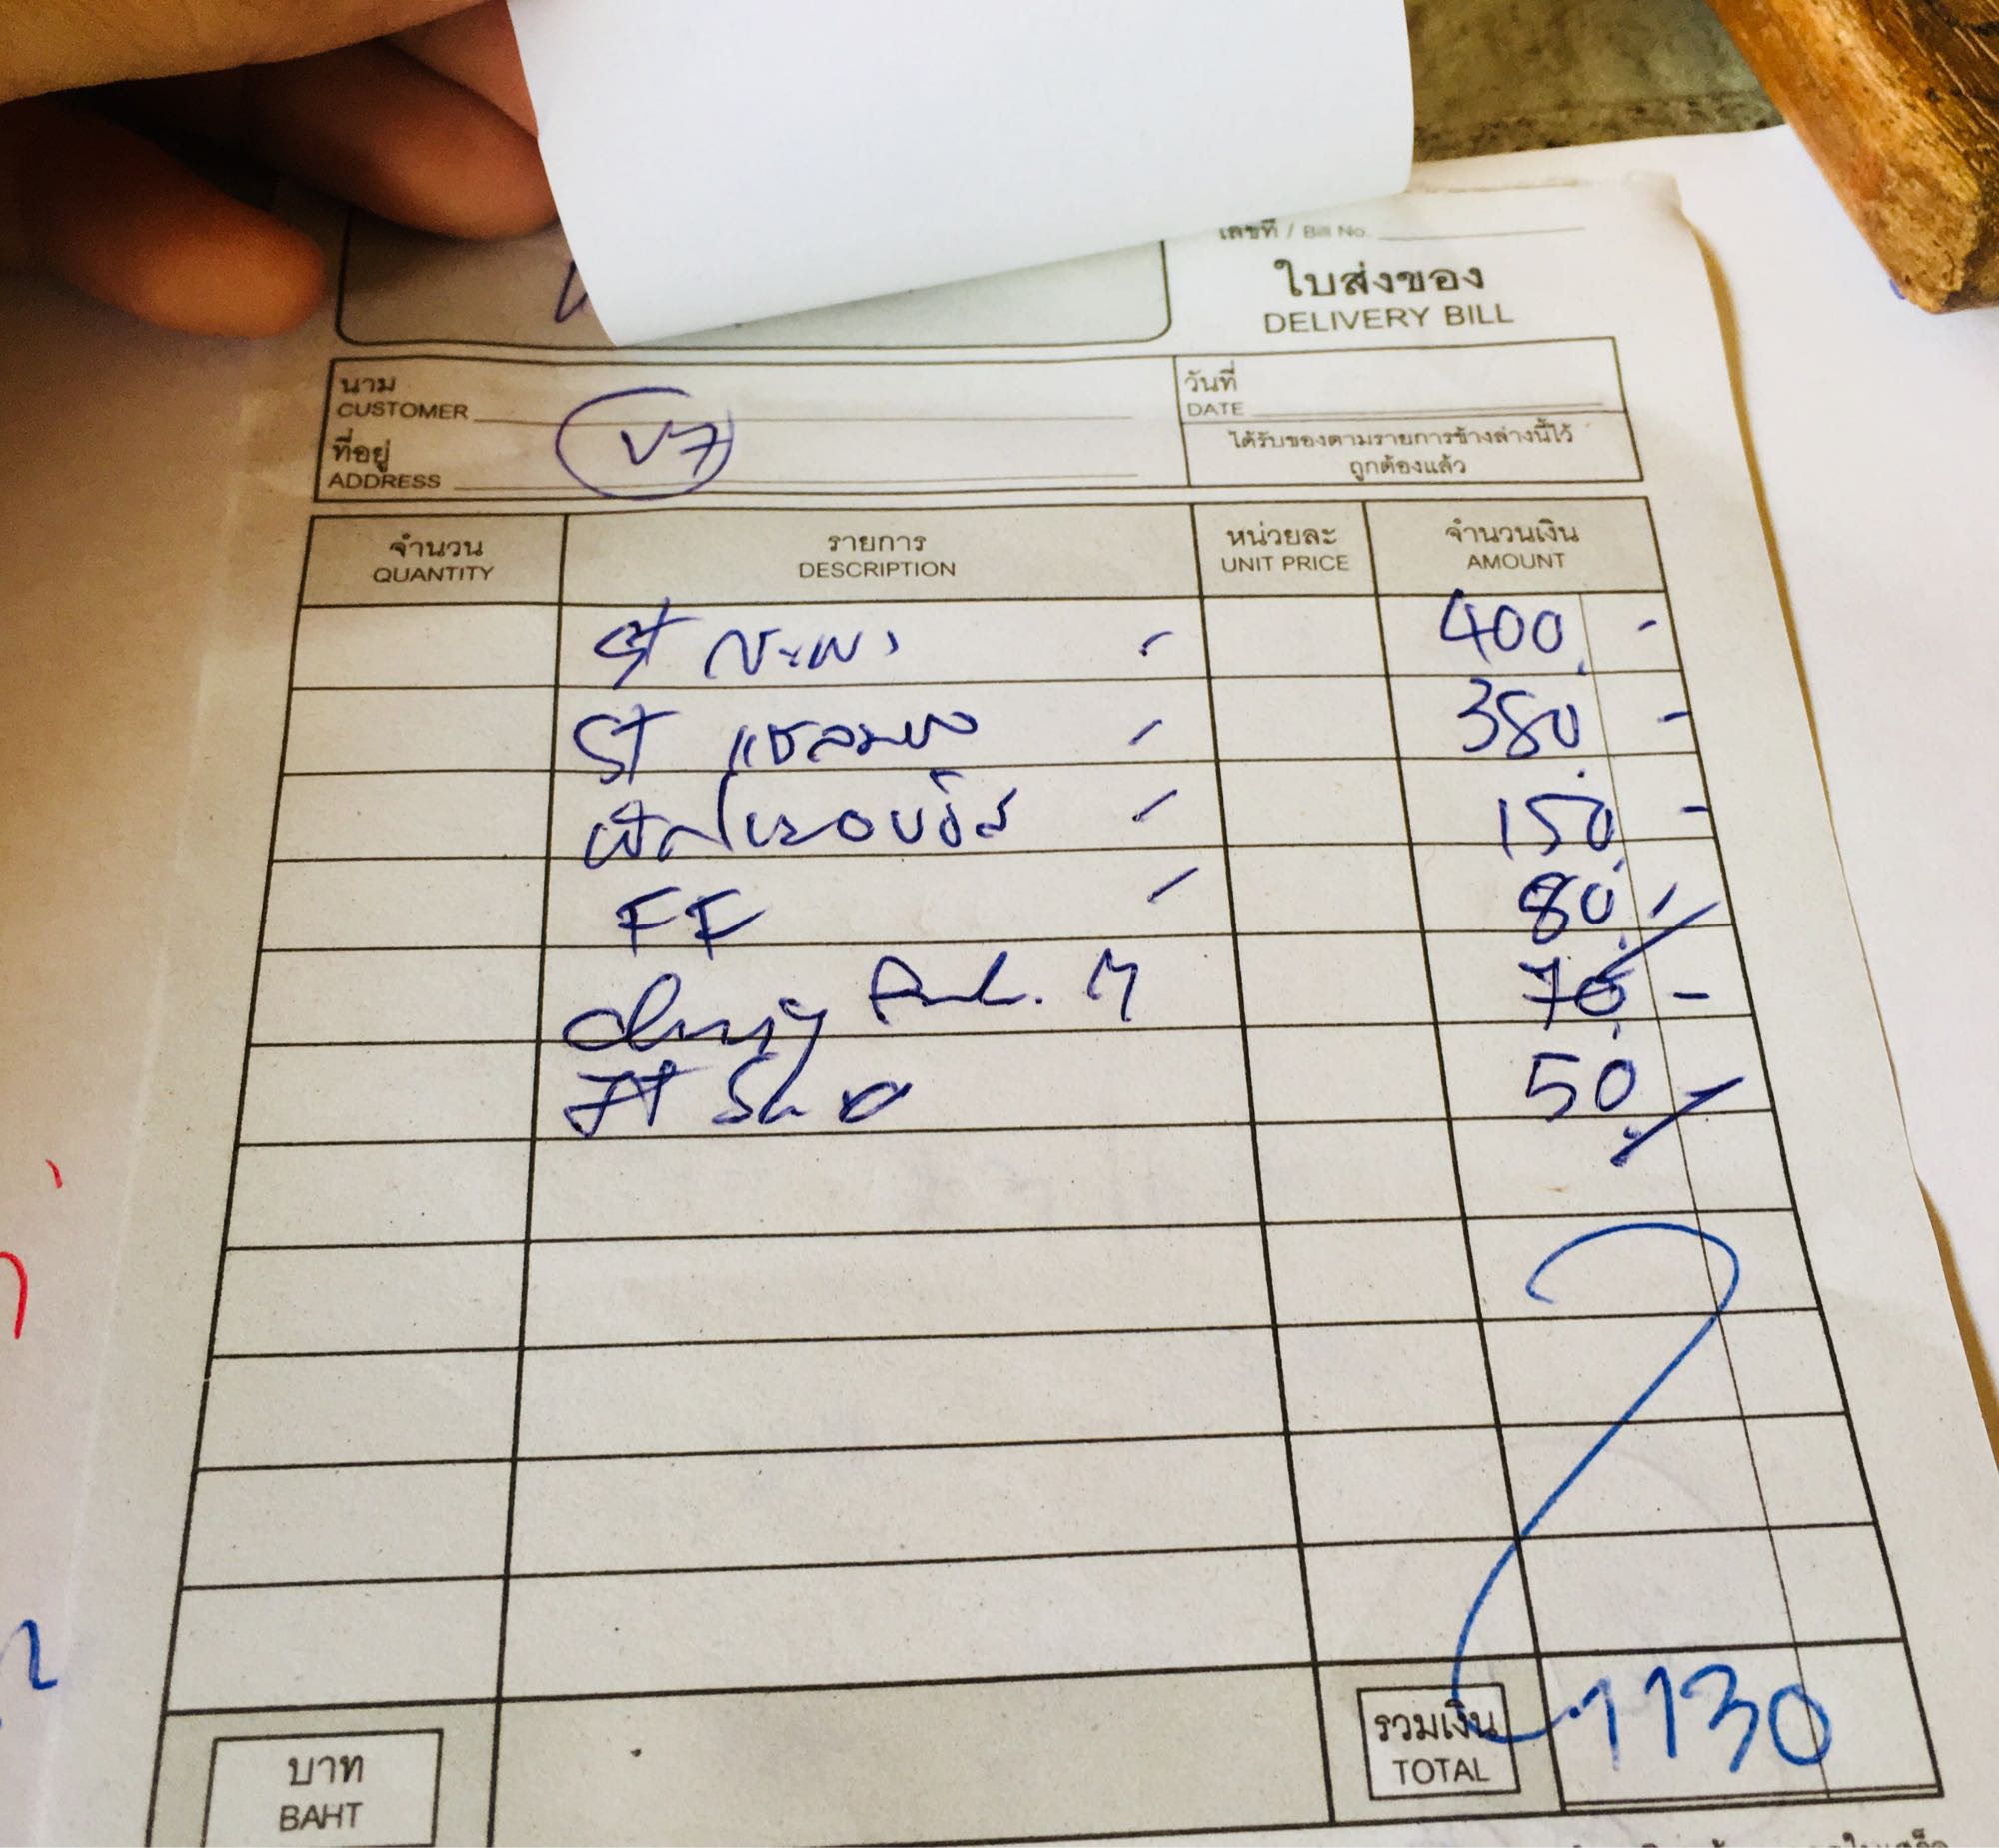 เลขที่ / Bill No.
ใบส่งของ
DELIVERY BILL
นาม
CUSTOMER
ที่อยู่
ADDRESS
V7
วันที่
DATE
ได้รับของตามรายการข้างล่างนี้ไว้
ถูกต้องแล้ว
จำนวน QUANTITY รายการ DESCRIPTION หน่วยละ UNIT PRICE จำนวนเงิน AMOUNT
ST กะเพรา 400 -
ST 380 -
150 -
FF 80
70 -
50 -
บาท
BAHT
รวมเงิน
TOTAL
1130